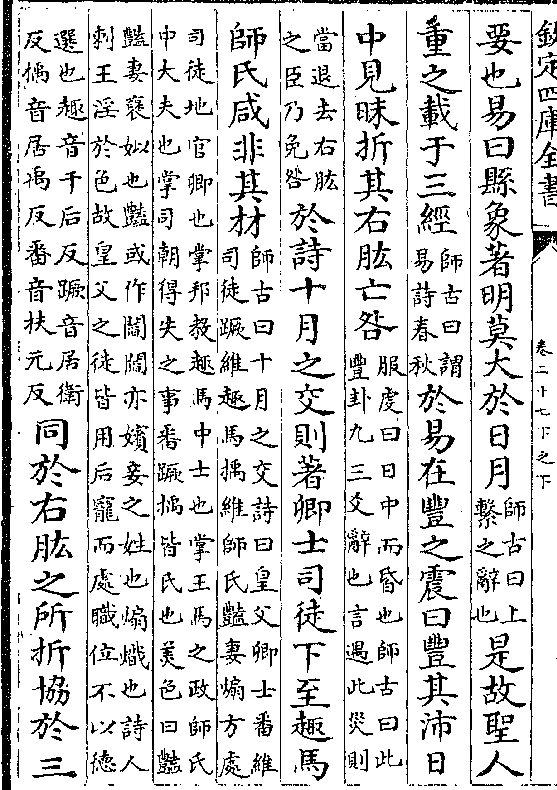 欽定四庫全書
卷二十七下之下
要也易曰縣象著明莫大於日月師古曰上繫之辭也是故聖人
重之載于三經師古曰謂易詩春秋於易在豐之震曰豐其沛日
中見昧折其右肱亡咎服虔曰日中而昏也師古曰此豐卦九三爻辭也言遇此災則
當退去右肱之臣乃免咎於詩十月之交則著卿士司徒下至趣馬
師氏咸非其材師古曰十月之交詩曰皇父卿士番維司徒蹶維趣馬楀維師氏豔妻煽方處
司徒地官卿也掌邦教趣馬中士也掌王馬之政師氏中大夫也掌司朝得失之事番蹶楀皆氏也美色曰豔
豔妻襃姒也豔或作閻閻亦嬪妾之姓也煽熾也詩人刺王淫於色故皇父之徒皆用后寵而處職位不以德
選也趣音千后反蹶音居衛反楀音居禹反番音扶元反同於右肱之所折協於三